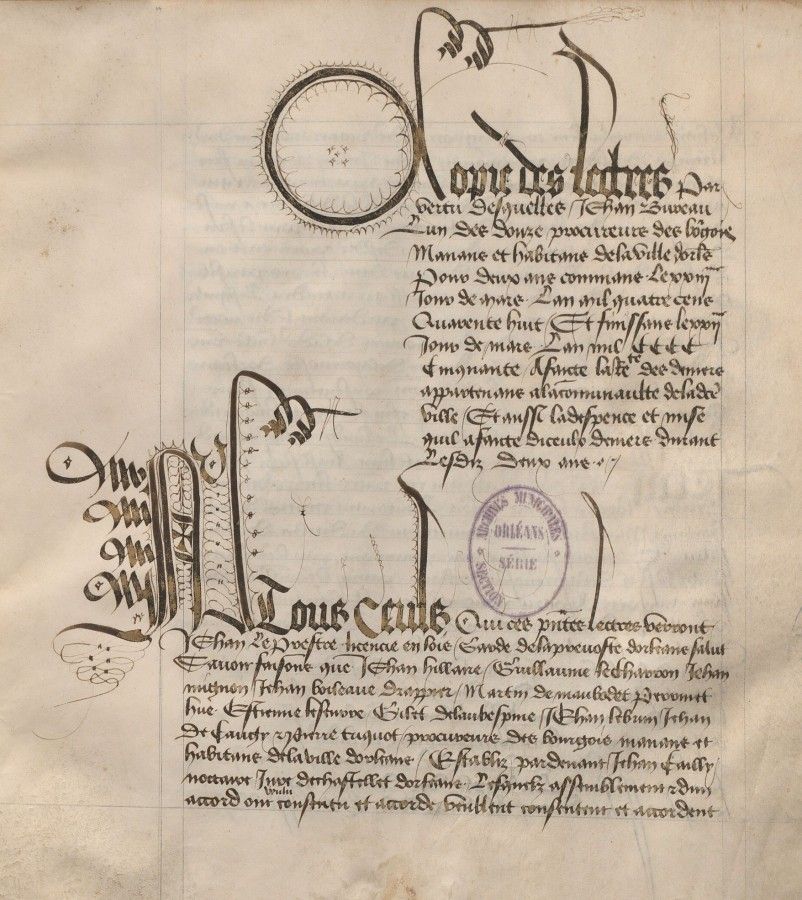 Copie des lectres Par
vertu desquelles / Jehan Bureau
Lun des douze procureurs des bo͛gois
Manans et habitans de la ville dorl͛s
Pour deux ans commans le xxiiij
Jour de mars Lan mil quatre cens
Quarente huit / Et finissans le xxiij
Jour de mars Lan mil CCCC
Cinquante / A faicte la rec͛te des deniers
appartenans a la co͞munaulte de lad͞ce
ville / Et aussi la despence et mise
quil a faicte diceulx deniers durant
Lesdiz deux ans
ARCHIVES MUNICIPALES
ORLÉANS
SÉRIE
SECTION
A Tous Ceulx Qui ces p͞ntes lectres verront
Jehan Le Prestre licencie en lois / Garde de la prevoste dorleans salut
Savoir faisons que Jehan hillaire / Guillaume le Charron Jehan
mignon Jehan boileaue drappier / Martin de maubodet Perronnet
hue Estienne lesourt Gilet delaubespine / Jehan lebrun Jehan
de Caugy et Pierre triquot / procureurs des bourgois manans et
habitans de la ville dorleans / Establiz pardevant Jehan Cailly
nottaire Jure de chastellet dorleans Lesquelx assemblement et dun
accord ont voulu constitu et accorde veullent consentent et accordent